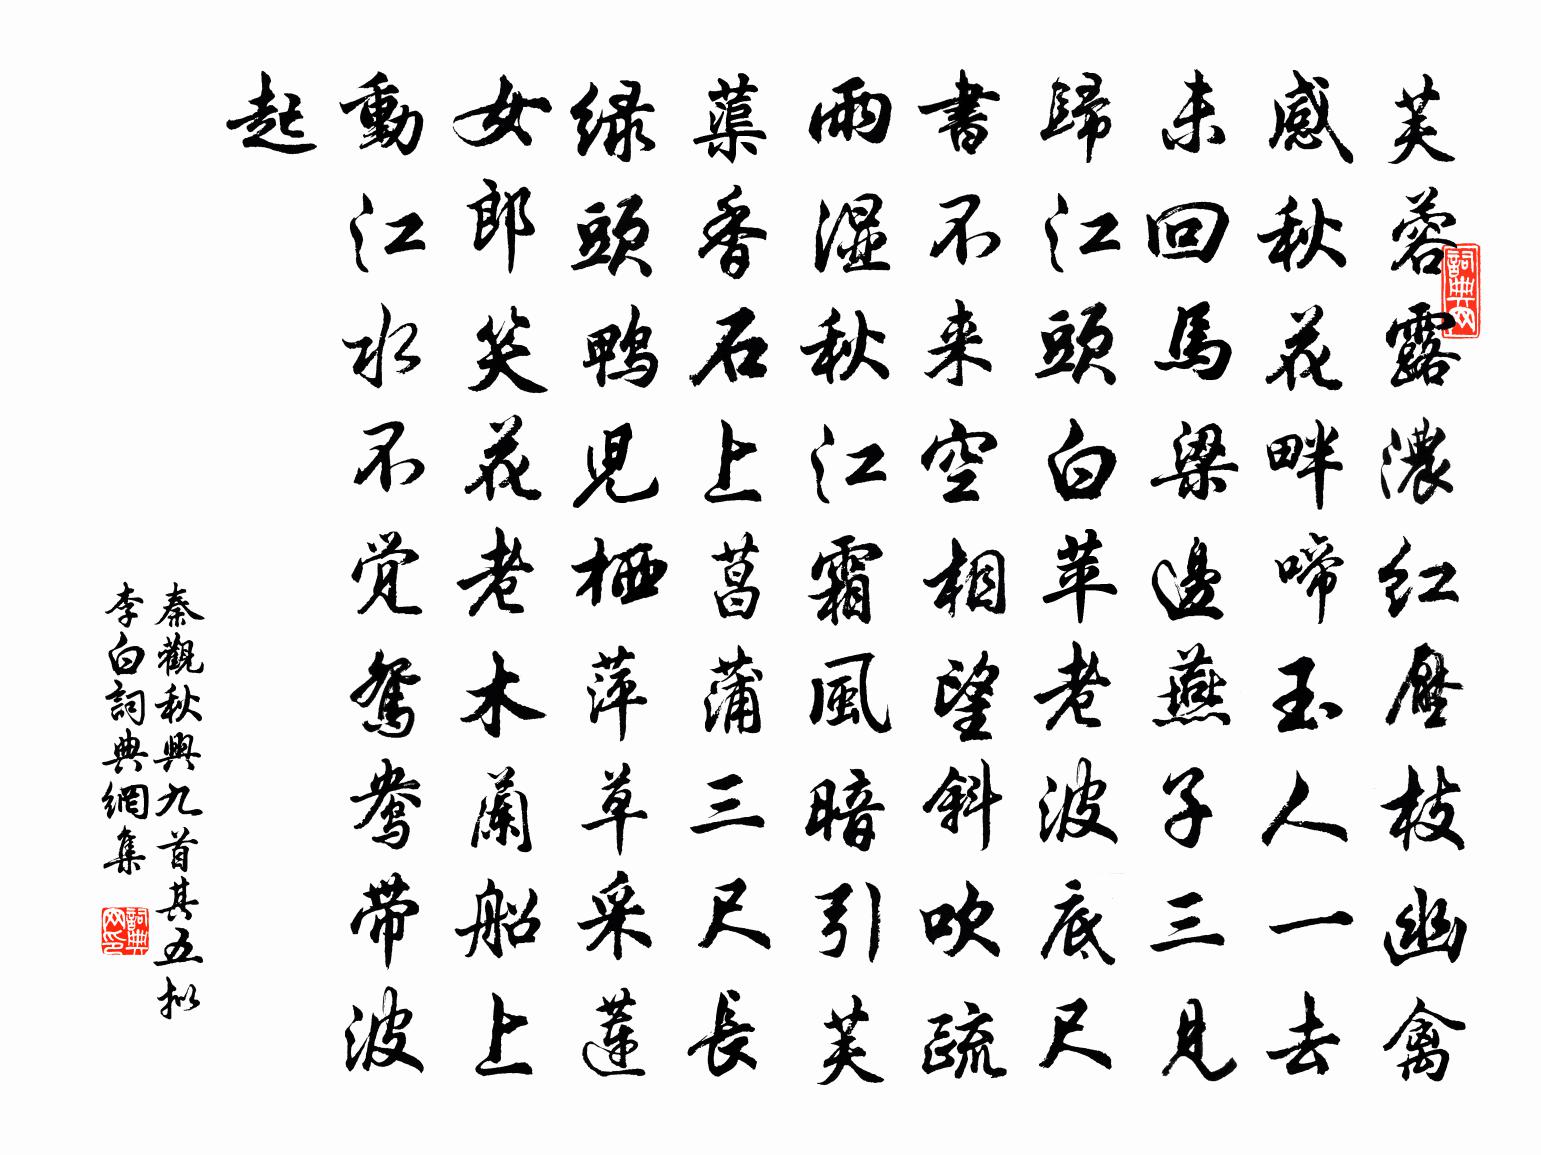 芙蓉露濃紅壓枝幽禽
感秋花畔啼玉人一去
未回馬梁邊燕子三見
歸江頭白苹老波底尺
書不来空相望斜吹疏
雨湿秋江霜風暗引芙
蕖香石上菖蒲三尺長
绿頭鴨兒栖萍草采蓮
女郎笑花老木蘭船上
動江水不覺鴛鴦带波
起
秦觀秋興九首其五拟
李白詞典網集
詞典网
詞典网印